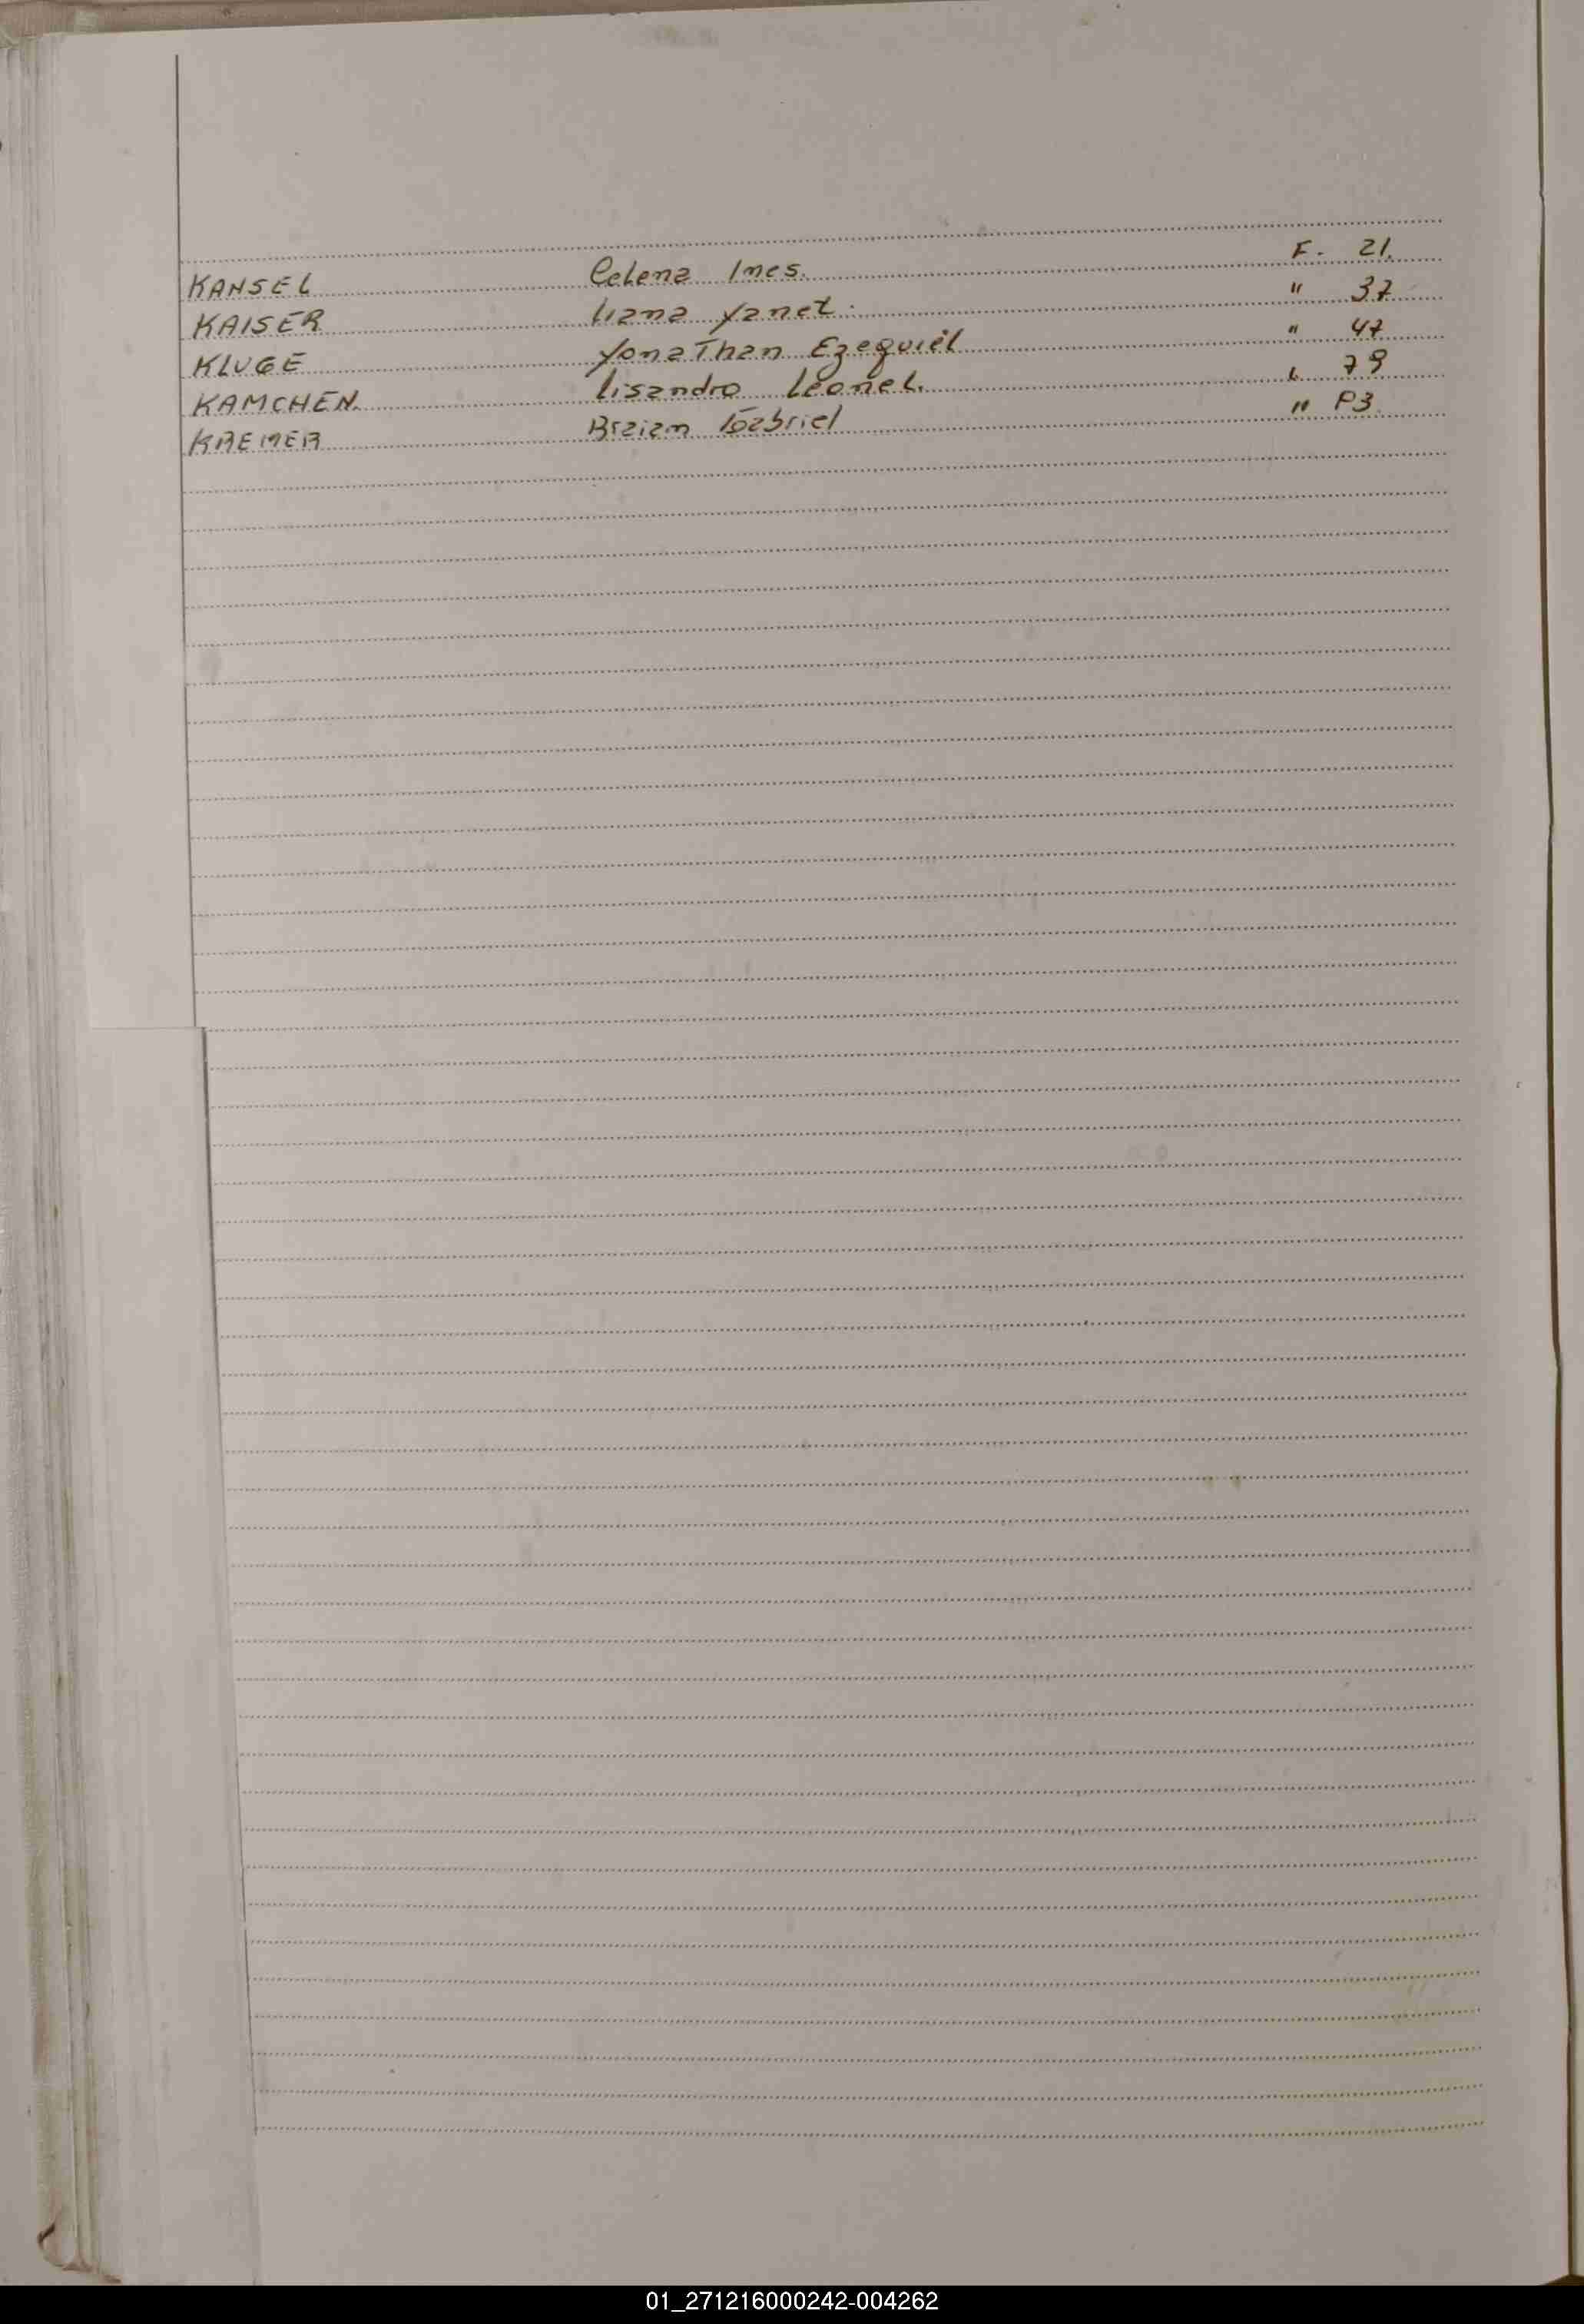 KANSEL Celena Ines. F. 21.
KAISER liana Yanet. " 37
KLUGE YonaThan Ezequiel " 47
KAMCHEN. lisandro Leonel. " 79
KREMER Braian Gabriel " 83
01_271216000242-004262